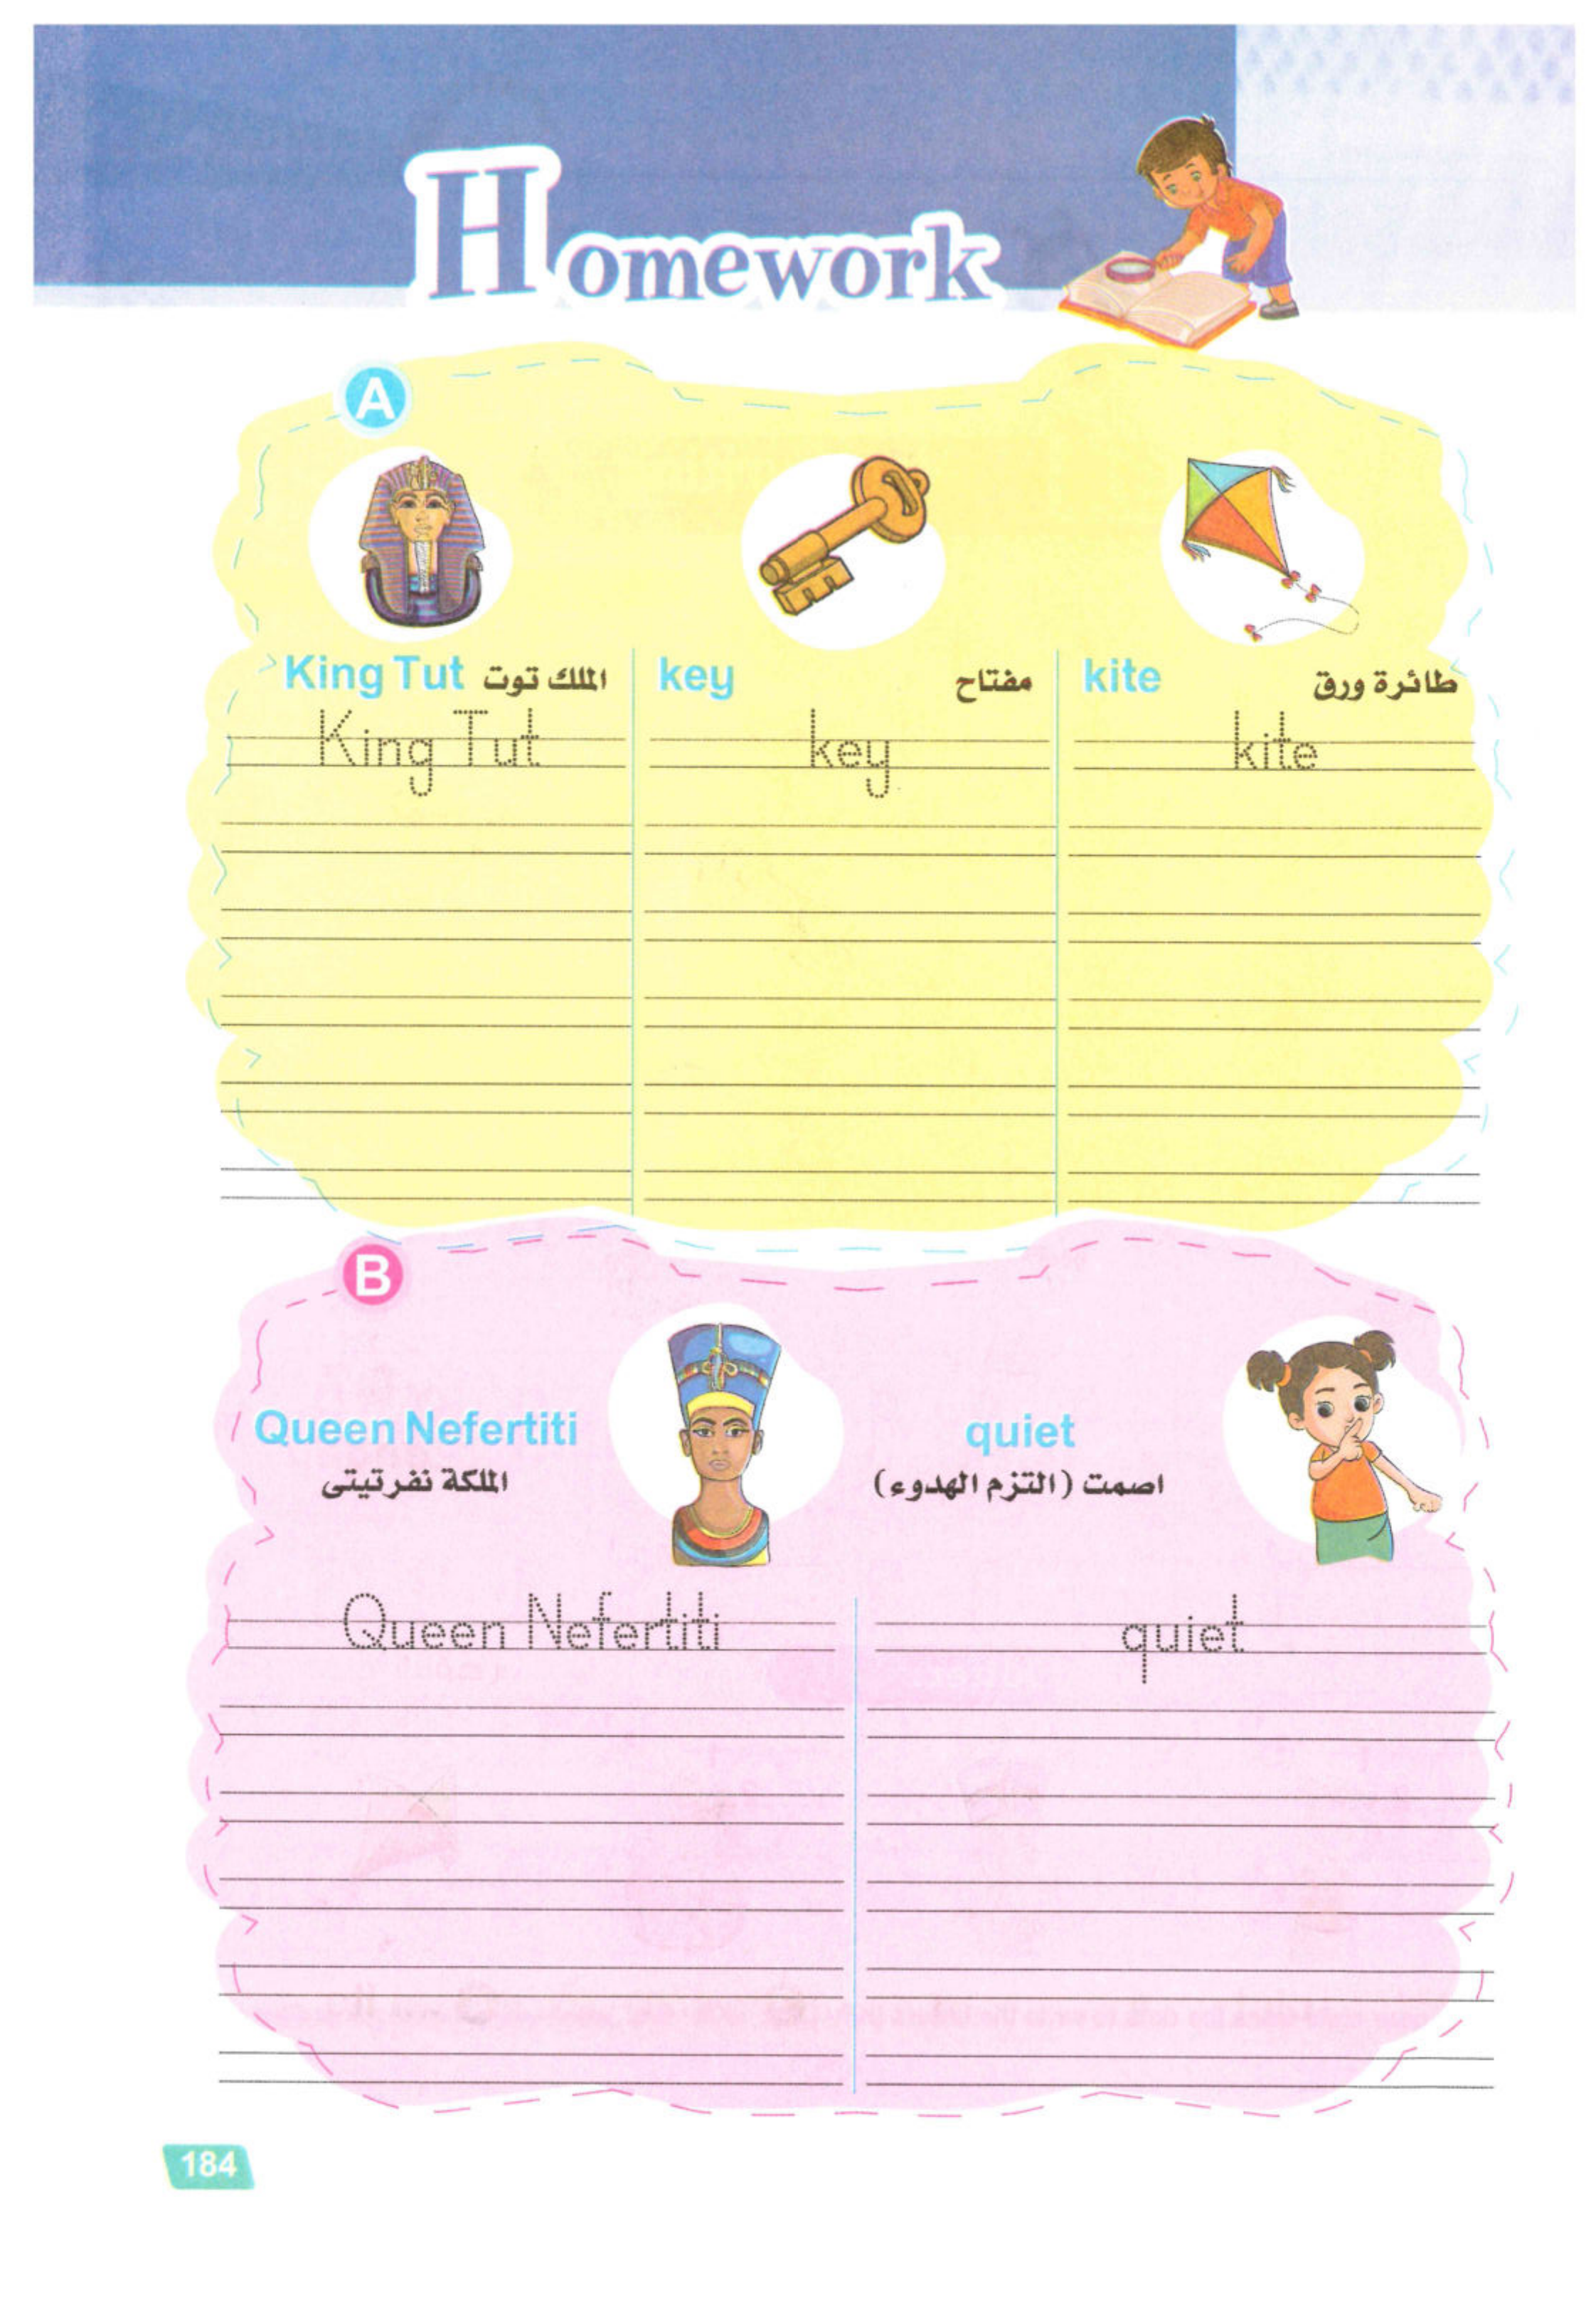 Homework
A
King Tut الملك توت
key مفتاح
kite طائرة ورق
King Tut
key
kite
B
Queen Nefertiti
الملكة نفرتيتى
quiet
اصمت (التزم الهدوء)
Queen Nefertiti
quiet
184